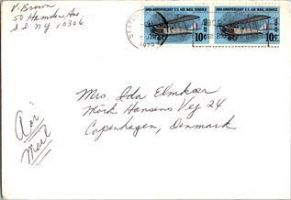 V. Brown
50 Hamden Ave
S.I. NY 10306
50TH ANNIVERSARY U.S. AIR MAIL SERVICE
10c
50TH ANNIVERSARY U.S. AIR MAIL SERVICE
10c
Air
Mail
Mrs. Ida Elmkær
Mörk Hansens Vej 24
Copenhagen, Denmark